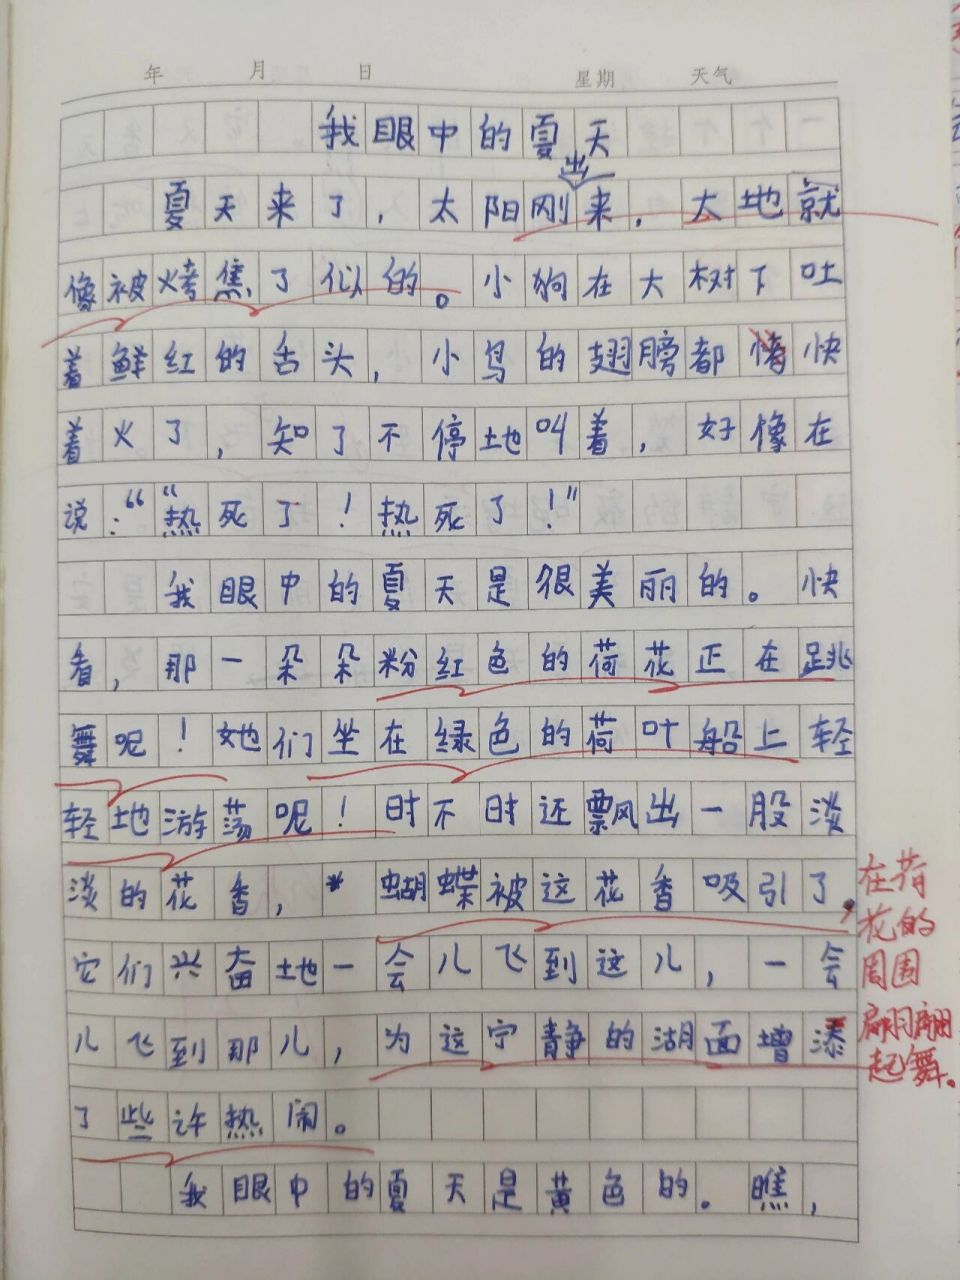 年 月 日 星期 天气
我眼中的夏天
出
夏天来了，太阳刚来，大地就
像被烤焦了似的。小狗在大树下吐
着鲜红的舌头，小鸟的翅膀都快
着火了，知了不停地叫着，好像在
说：“热死了！热死了！”
我眼中的夏天是很美丽的。快
看，那一朵朵粉红色的荷花正在跳
舞呢！她们坐在绿色的荷叶船上轻
轻地游荡呢！时不时还飘出一股淡
淡的花香，蝴蝶被这花香吸引了，
在荷
花的
周围
翩翩
起舞。
它们兴奋地一会儿飞到这儿，一会
儿飞到那儿，为这宁静的湖面增添
了些许热闹。
我眼中的夏天是黄色的。瞧，